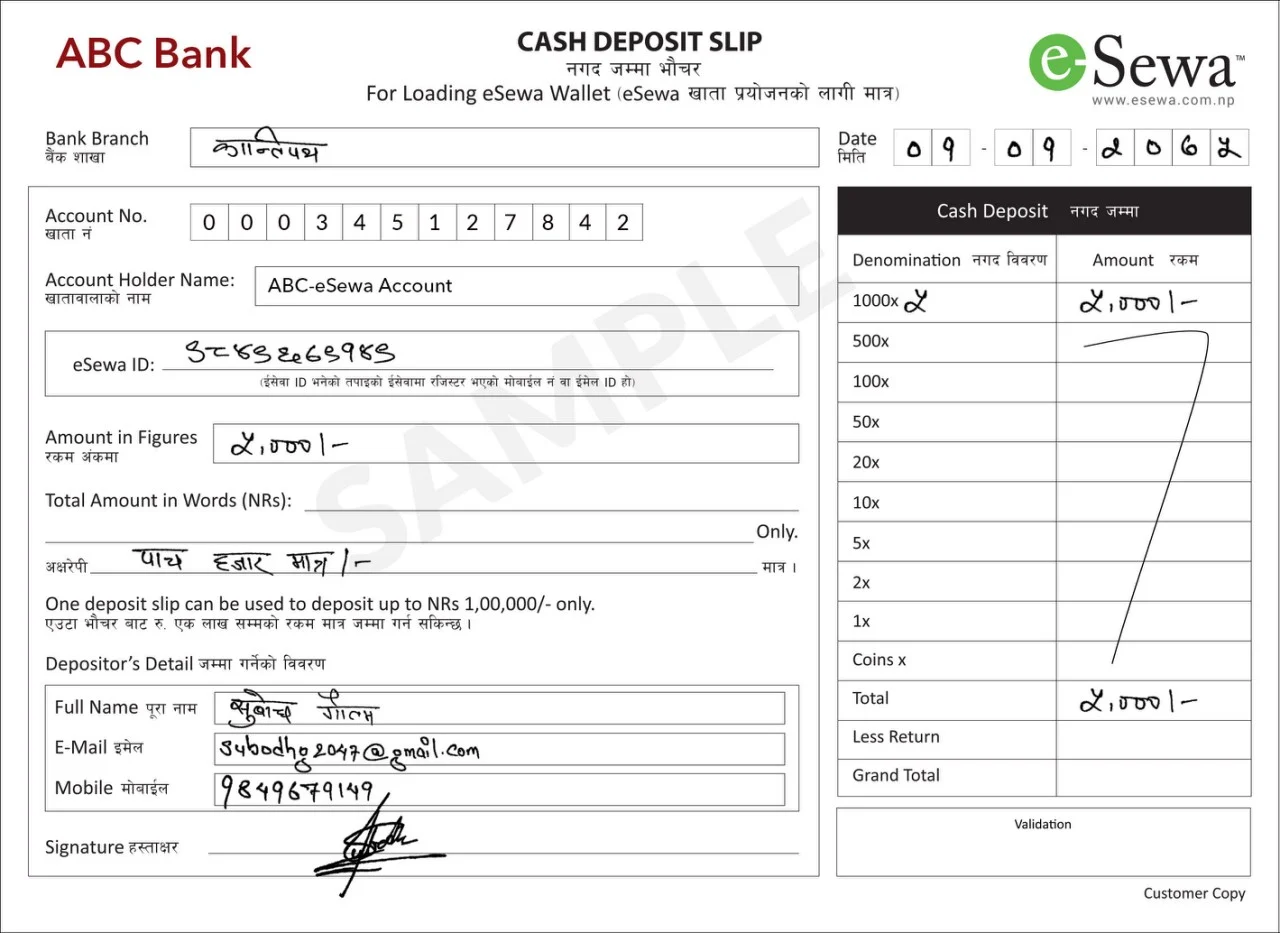 ABC Bank
CASH DEPOSIT SLIP
नगद जम्मा भौचर
For Loading eSewa Wallet (eSewa खाता प्रयोजनको लागी मात्र)
e-Sewa™
www.esewa.com.np
Bank Branch कान्तिपथ
बैंक शाखा
Date ०१ - ०१ - २०६५
मिति
Account No. 000345127842
खाता नं
Account Holder Name: ABC-eSewa Account
खातावालाको नाम
eSewa ID: ९८४९६७९१४९
(ईसेवा ID भनेको तपाइको ईसेवामा रजिस्टर भएको मोबाईल नं वा ईमेल ID हो)
Amount in Figures ५,०००/-
रकम अंकमा
Total Amount in Words (NRs):
Only.
अक्षरेपी पाच हजार मात्र /- मात्र ।
One deposit slip can be used to deposit up to NRs 1,00,000/- only.
एउटा भौचर बाट रु. एक लाख सम्मको रकम मात्र जम्मा गर्न सकिन्छ ।
Depositor's Detail जम्मा गर्नेको विवरण
Full Name पूरा नाम सुबोध गौतम
E-Mail इमेल subodhg2047@gmail.com
Mobile मोबाईल 9849679149
Signature हस्ताक्षर
Cash Deposit नगद जम्मा
Denomination नगद विवरण Amount रकम
1000x ५ ५,०००/-
500x
100x
50x
20x
10x
5x
2x
1x
Coins x
Total ५,०००/-
Less Return
Grand Total
Validation
Customer Copy
SAMPLE